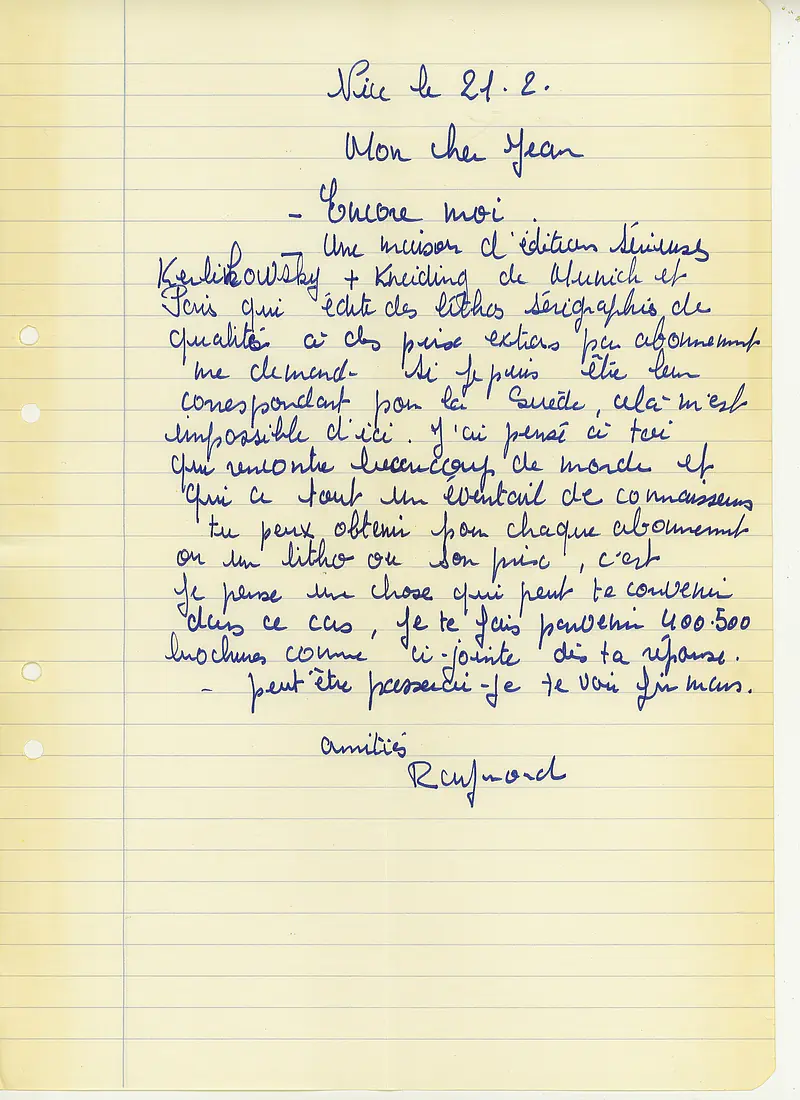 Nice le 21. 2.
Mon cher Jean
- Encore moi.
- Une maison d'éditions sérieuses
Kerlikowsky + Kneiding de Munich et
Paris qui édite des lithos sérigraphis de
qualités à des prix extras par abonnement
me demand- si je puis être leur
correspondant pour la Suède, celà m'est
impossible d'ici. J'ai pensé à toi
qui rencontre beaucoup de monde et
qui a tout un éventail de connaisseurs
tu peux obtenir pour chaque abonnement
ou un litho ou son prix, c'est
je pense une chose qui peut te convenir
dans ce cas, je te fais parvenir 400.500
brochures comme ci-jointe dès ta réponse.
- peut'être passerai-je te voir fin mars.
amitiés
Raymond